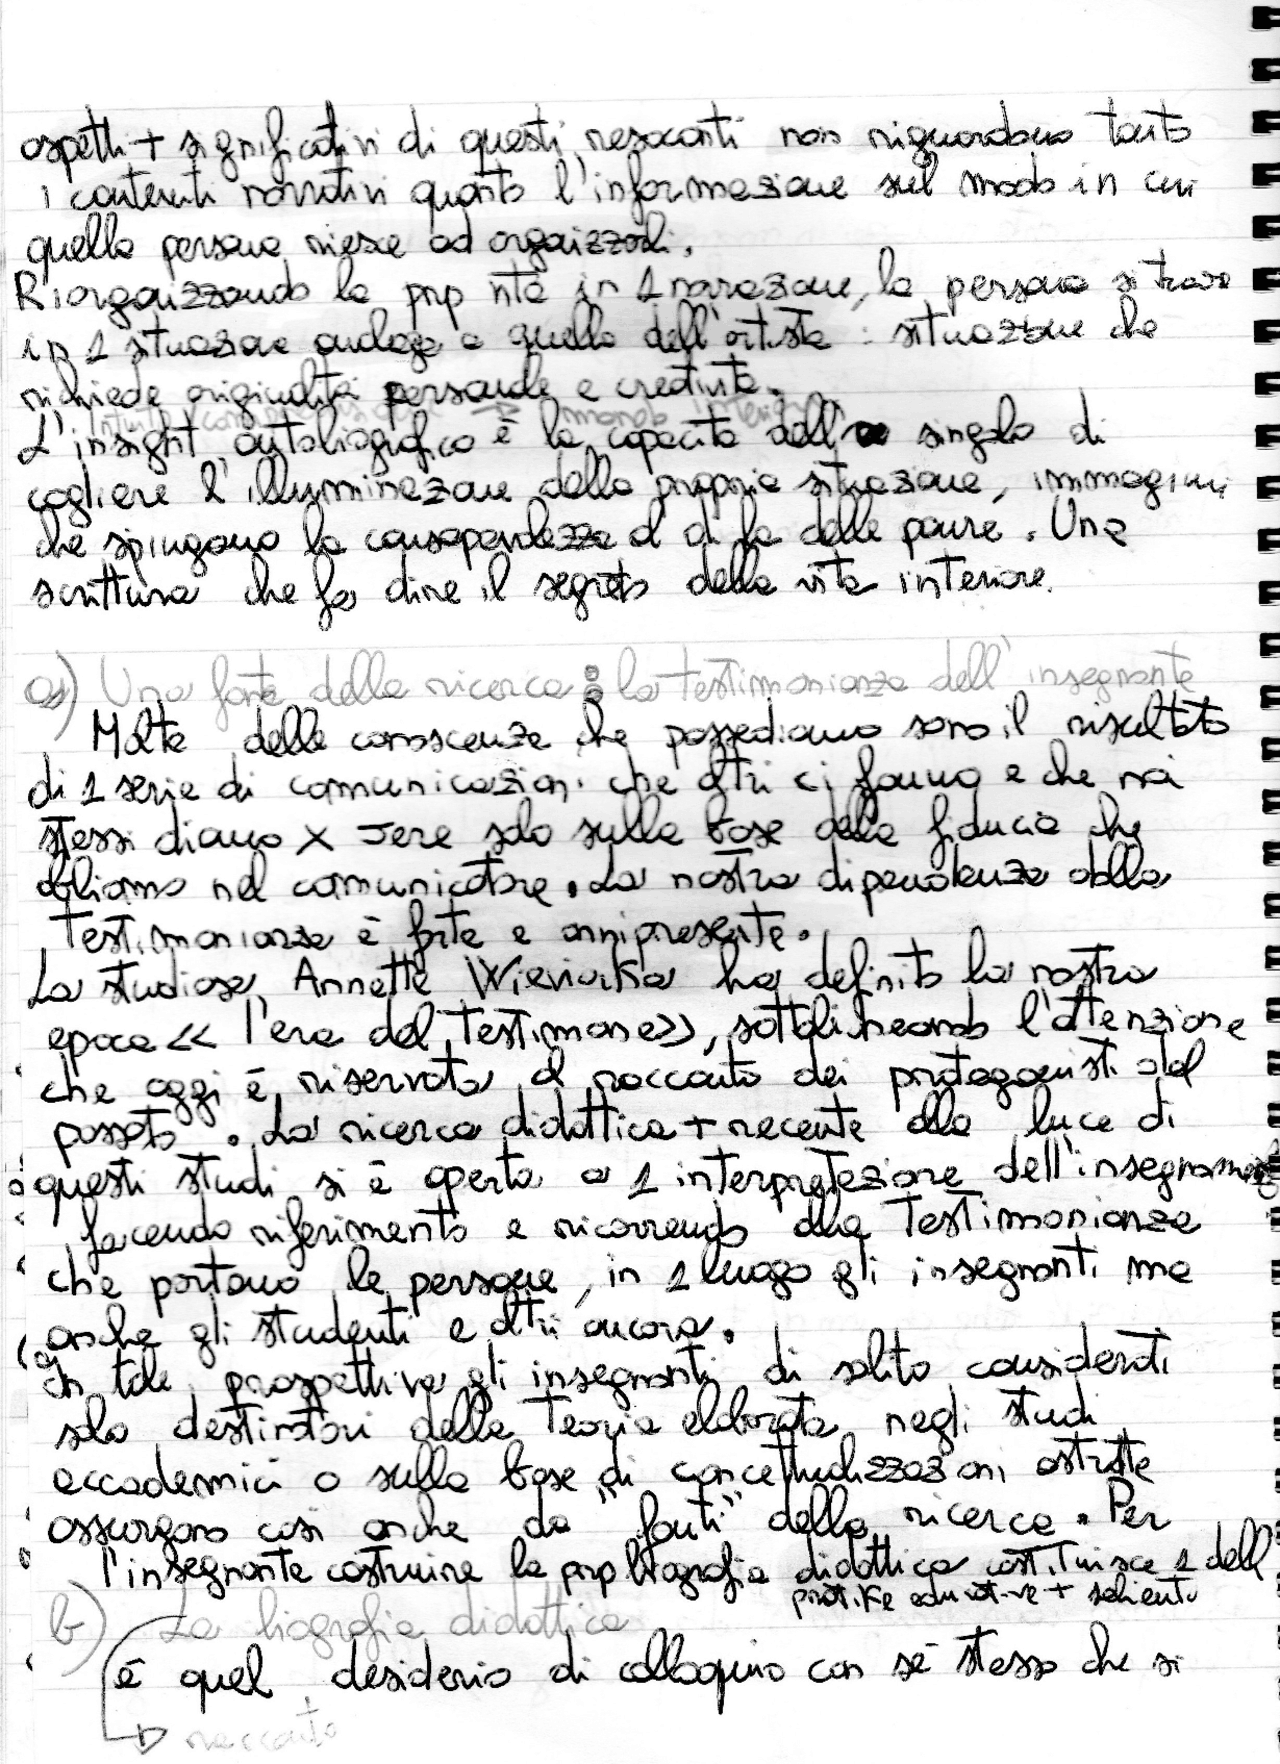 aspetti + significativi di questi resoconti non riguardano tanto
i contenuti narrativi quanto l'informazione sul modo in cui
quella persona riesce ad orgaizzarli.
Riorganizzando la prop vita in 1 narrazione, la persona si trova
in 1 situazione analoga a quella dell'artista : situazione che
richiede originalità personale e creatività.
intuito comprensione → mondo interiore
L'insight autobiografico è la capacità dell' singolo di
cogliere l'illuminazione della propria situazione, immagini
che spingono la consapevolezza al di là delle paure. Una
scrittura che fa dire il segreto della vita interiore.
a) Una fonte della ricerca : la testimonianza dell'insegnante
Molte delle conoscenze che possediamo sono il risultato
di 1 serie di comunicazioni che altri ci fanno e che noi
stessi diamo x vere solo sulla base della fiducia che
abbiamo nel comunicatore. La nostra dipendenza dalla
testimonianza è forte e onnipresente.
La studiosa Annette Wieviorka ha definito la nostra
epoca << l'era del testimone>>, sottolineando l'attenzione
che oggi è riservata al racconto dei protagonisti del
passato. La ricerca didattica + recente alla luce di
questi studi si è aperta a 1 interpretazione dell'insegnamento
facendo riferimento e ricorrendo alla testimonianza
che portano le persone, in 1 luogo gli insegnanti ma
anche gli studenti e altri ancora.
In tale prospettiva gli insegnanti di solito considerati
solo destinatari della teoria elaborata negli studi
accademici o sulla base di concettualizzazioni astratte
assurgono così anche da "fonti" della ricerca. Per
l'insegnante costruire la prop biografia didattica costituisce 1 delle
pratike educative + salienti
b) La biografia didattica
è quel desiderio di colloquio con sè stesso che si
→ racconto